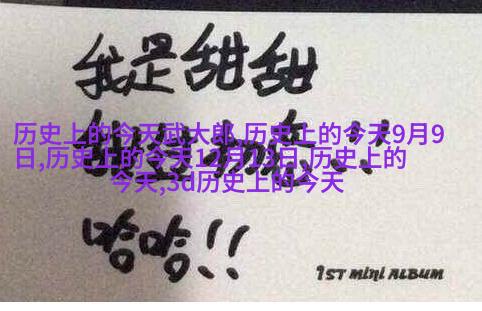 我是甜甜
历史上的今天武大郎,历史上的今天9月9
日,历史上的今天12月13日,历史上的
今天,3d历史上的今天
哈哈!!
1ST MINI ALBUM